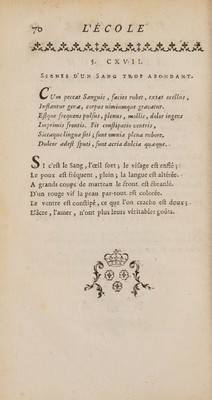 70 L'ÉCOLE
§. CXVII.
SIGNES D'UN SANG TROP ABONDANT.
CUm peccat Sanguis, facies rubet, extat ocellus,
Inflantur genæ, corpus nimiumque gravatur.
Estque frequens pulsus, plenus, mollis, dolor ingens
Imprimis frontis. Fit constipatio ventris,
Siccaque lingua siti; sunt omnia plena rubore.
Dulcor adest sputi, sunt acria dulcia quæque.
SI c'est le Sang, l'œil sort; le visage est enflé;
Le poux est fréquent, plein; la langue est altérée.
A grands coups de marteau le front est ébranlé.
D'un rouge vif la peau par-tout est colorée.
Le ventre est constipé, ce que l'on crache est doux;
L'âcre, l'amer, n'ont plus leurs véritables goûts.